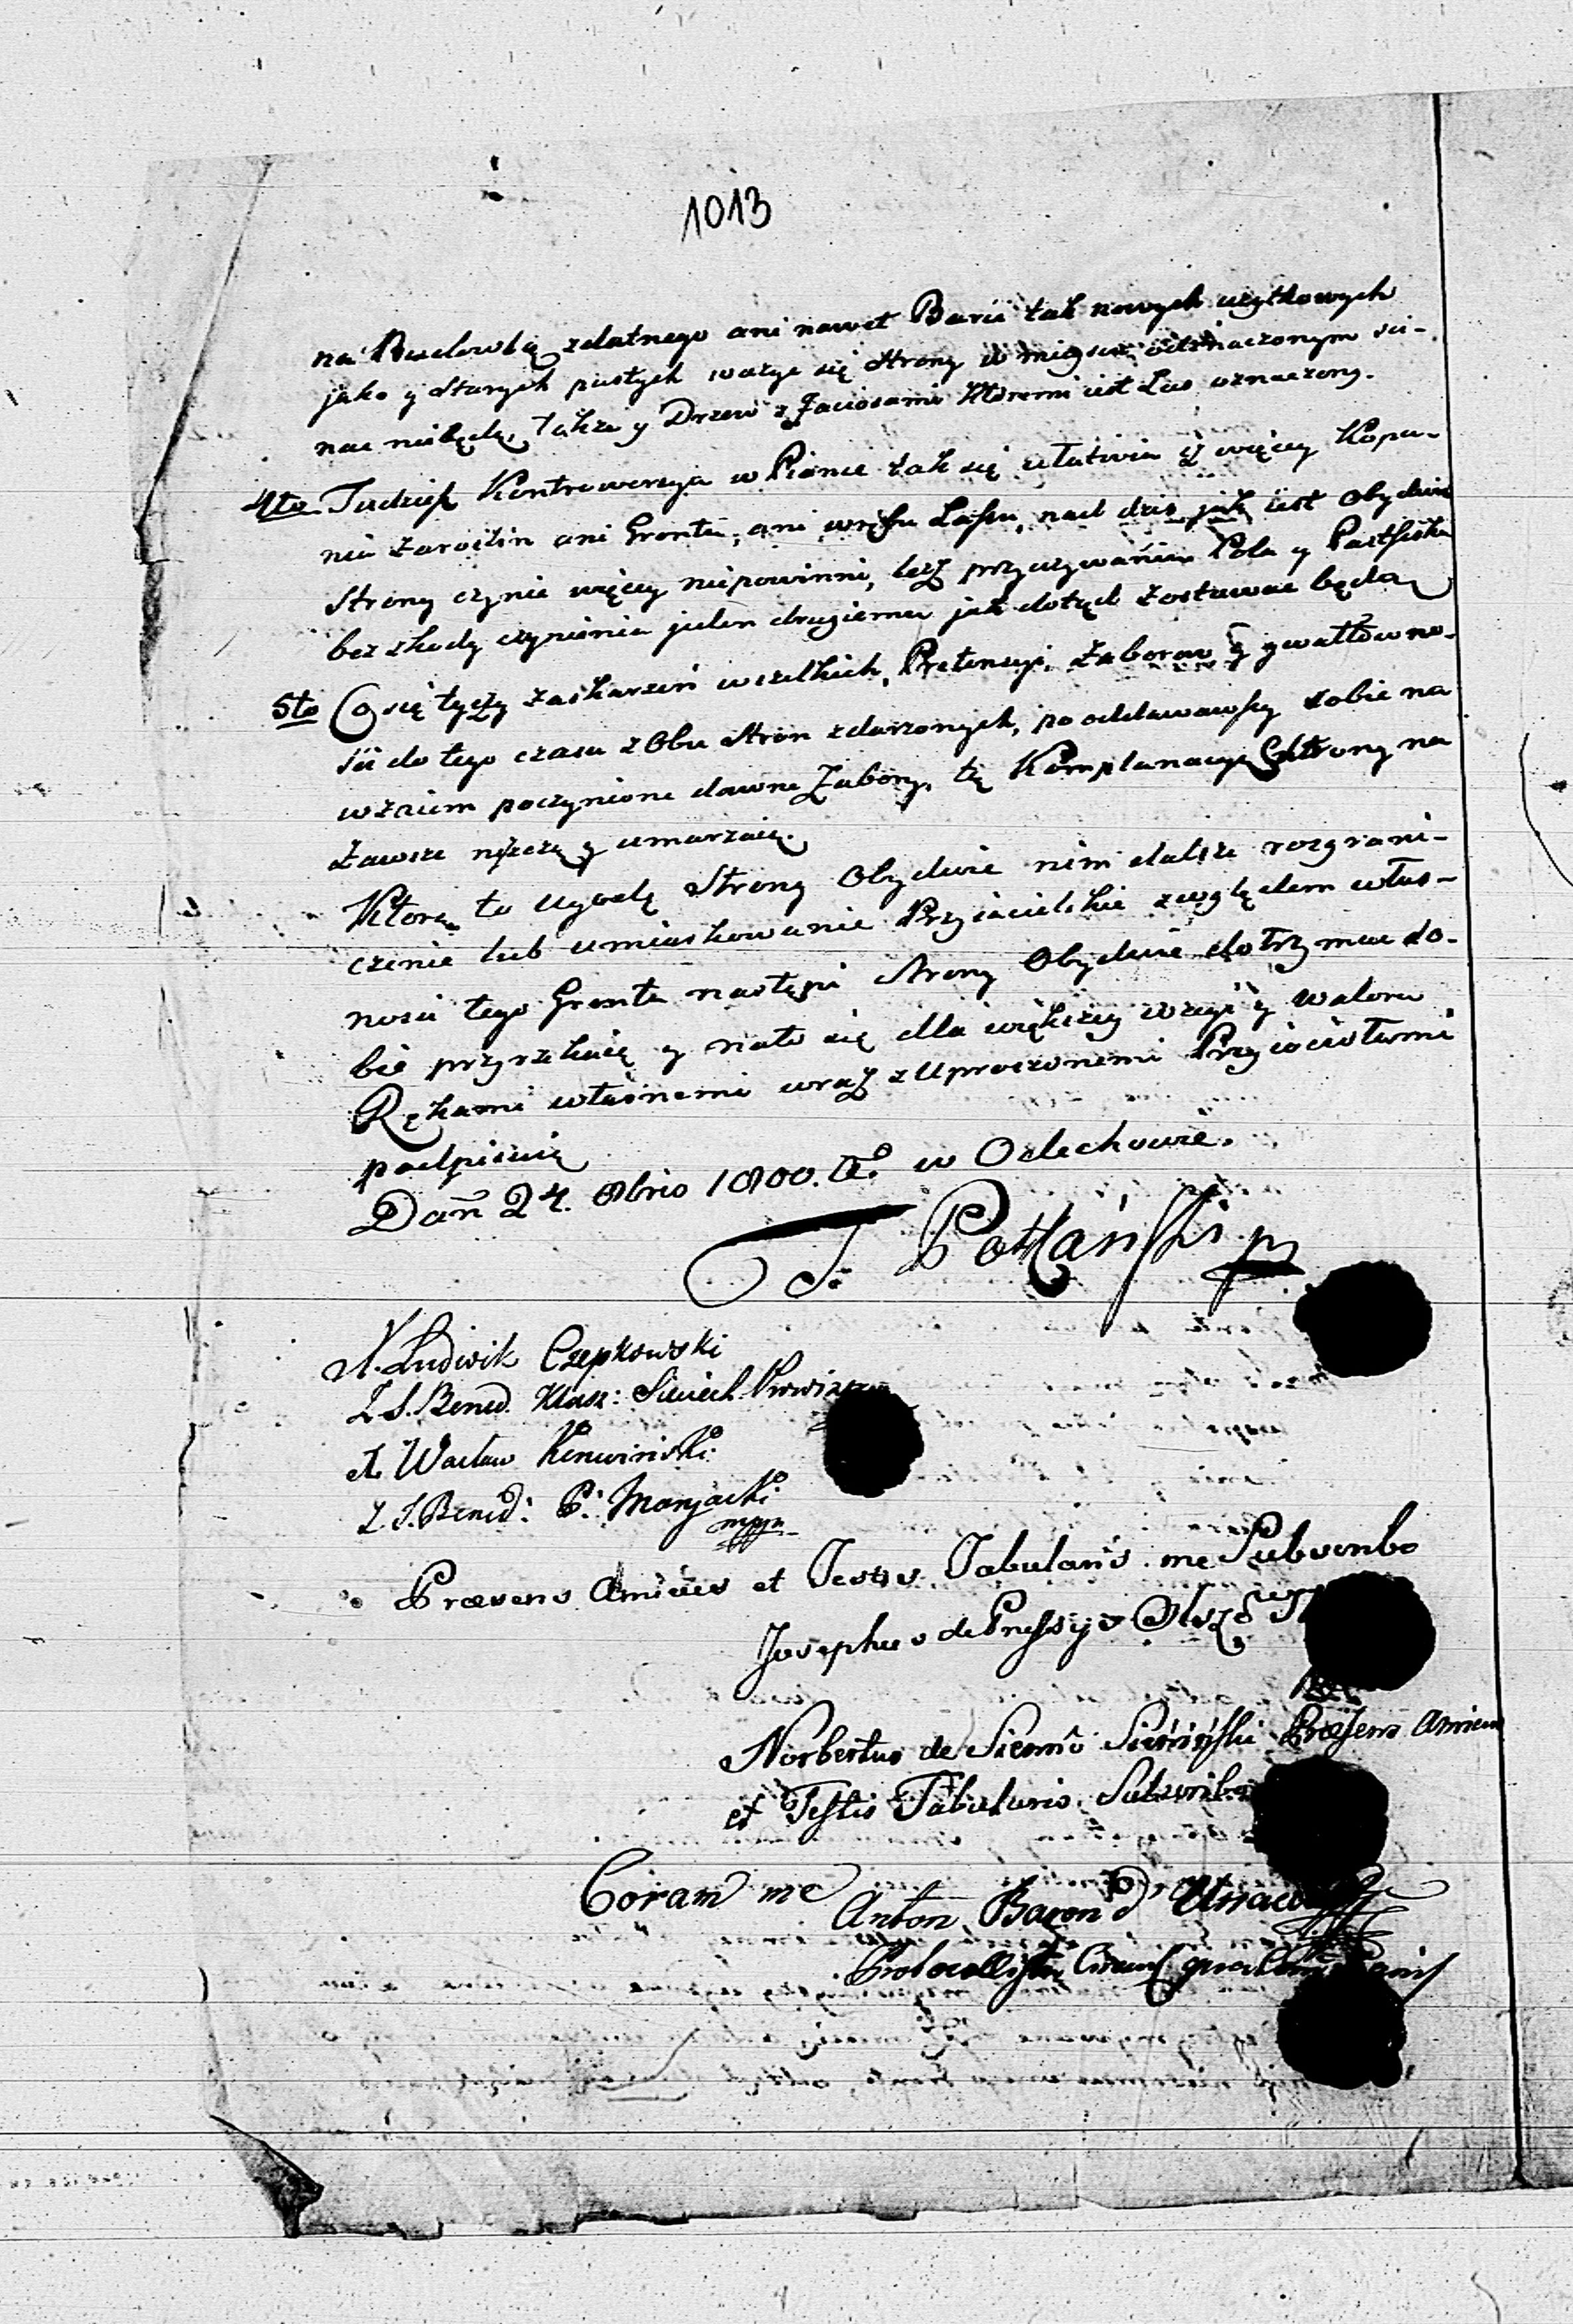 1013
na Budowlą zdatnego ani nawet Barci tak nowych uzytkowych
jako y Starych pustych wazyc się Strony w mieyscu odznaczonym sci-
nac niebędą, takze y Drzew z Zaciosami ktoremi iest Las oznaczony.
4to Tudzież Kontrowersya w Pionce tak się ułatwia iż więcey Kopa-
nia Zaroślin ani Gruntu, ani wrębu Lassu, nad dziś jak iest Obydwie
Strony czynic więcey niepowinni, lecz przy uzywaniu Pola y Pastwiska
bez szkody czynienia jeden drugiemu jak dotąd zostawac będą
5to Co się tyczy zaskarzeń wszelkich, Pretensyi, Zaborow y gwałtowno-
ści do tego czasu z Obu Stron zdarzonych, pooddawawszy sobie na
wzaiem poczynione dawne Zabory, tę Komplanacyę Strony na
zawsze niszczą y umarzaią.
Ktorą to ugodę Strony Obydwie nim dalsze rozgrani-
czenie lub umiarkowanie Przyiacielskie względem włas-
nosci tego Gruntu nastąpi Strony Obydwie dotrzymac so-
bie przyrzekaią y nato się dla większey wagi y waloru
Rękami własnemi wraz z Uproszonemi Przyiaciołami
podpisuią
Dañ 24. 8bris 1800. Ao w Oslechowie.
J. Potkański mp
X. Ludwik Czepkowski
Z. S. Bened. Klasz: Sieciech. Prowizor
X Wacław
Z. S. Bened: P:
mpp
Præsens Amicus et Testis Tabularis me Subscribo
Josephus de
Norbertus de Sienno Sieniński Præsens Amicus
et Testis Tabularis Subscribo
Coram me
Anton Baron d'
Protocollista